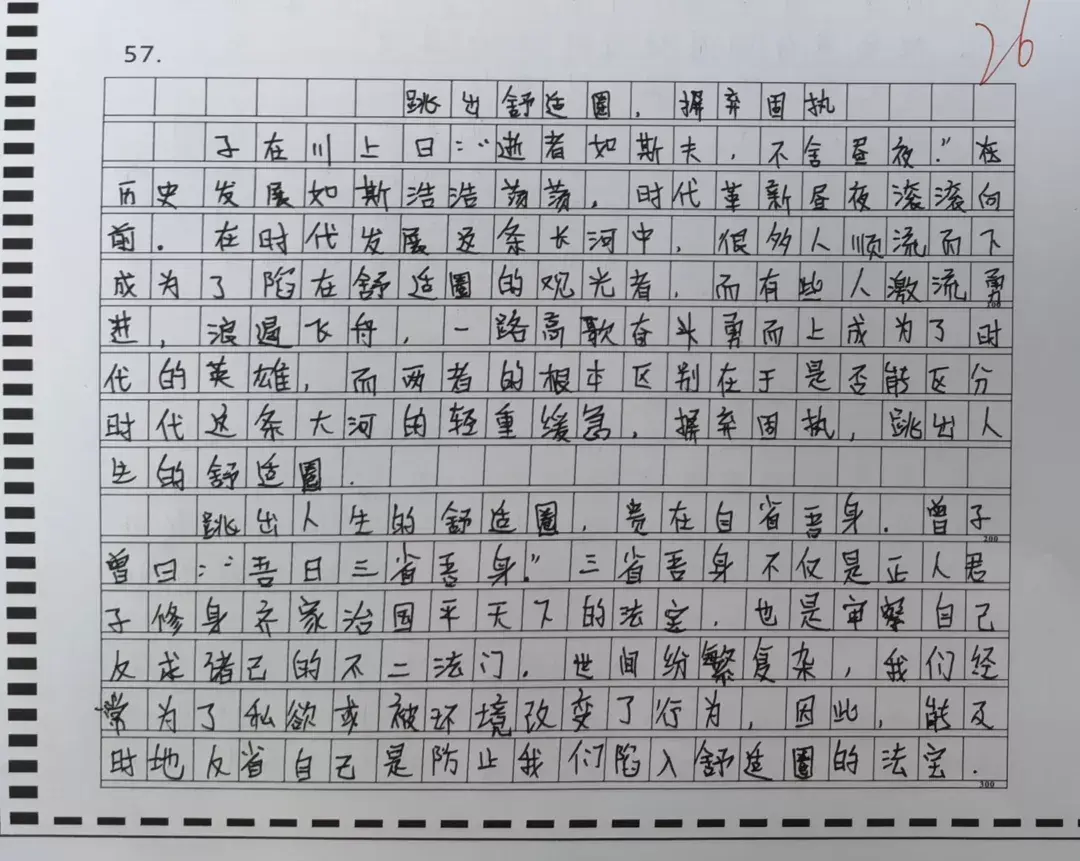 57.
26
跳出舒适圈，摒弃固执
子在川上曰："逝者如斯夫，不舍昼夜."在
历史发展如斯浩浩荡荡，时代革新昼夜滚滚向
前．在时代发展这条长河中，很多人顺流而下
成为了陷在舒适圈的观光者，而有些人激流勇
100
进，浪遏飞舟，一路高歌奋头勇而上成为了时
代的英雄，而两者的根本区别在于是否能区分
时代这条大河的轻重缓急，摒弃固执，跳出人
生的舒适圈．
跳出人生的舒适圈，贵在自省吾身．曾子
200
曾曰："吾日三省吾身."三省吾身不仅是正人君
子修身齐家治国平天下的法宝，也是审察自己
反求诸己的不二法门．世间纷繁复杂，我们经
常为了私欲或被环境改变了行为，因此，能及
时地反省自己是防止我们陷入舒适圈的法宝．
300